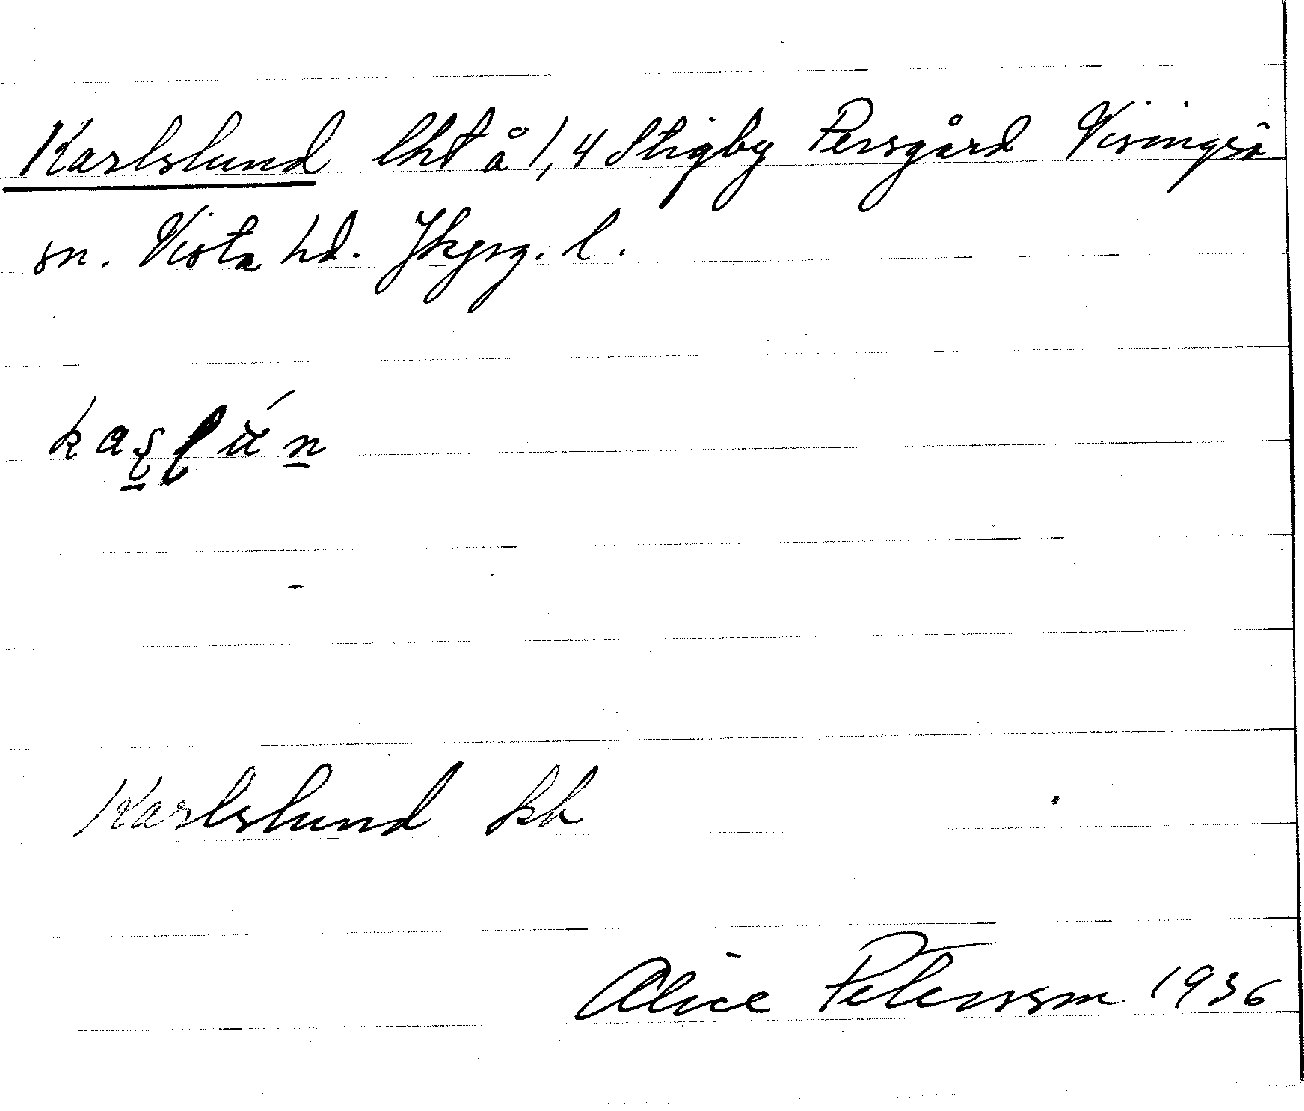 Karlslund lht å 1,4 Stigby Persgård Visingsö
sn. Vista hd. Jkpgs. l.
Karlslund kh
Alice Petersson 1936